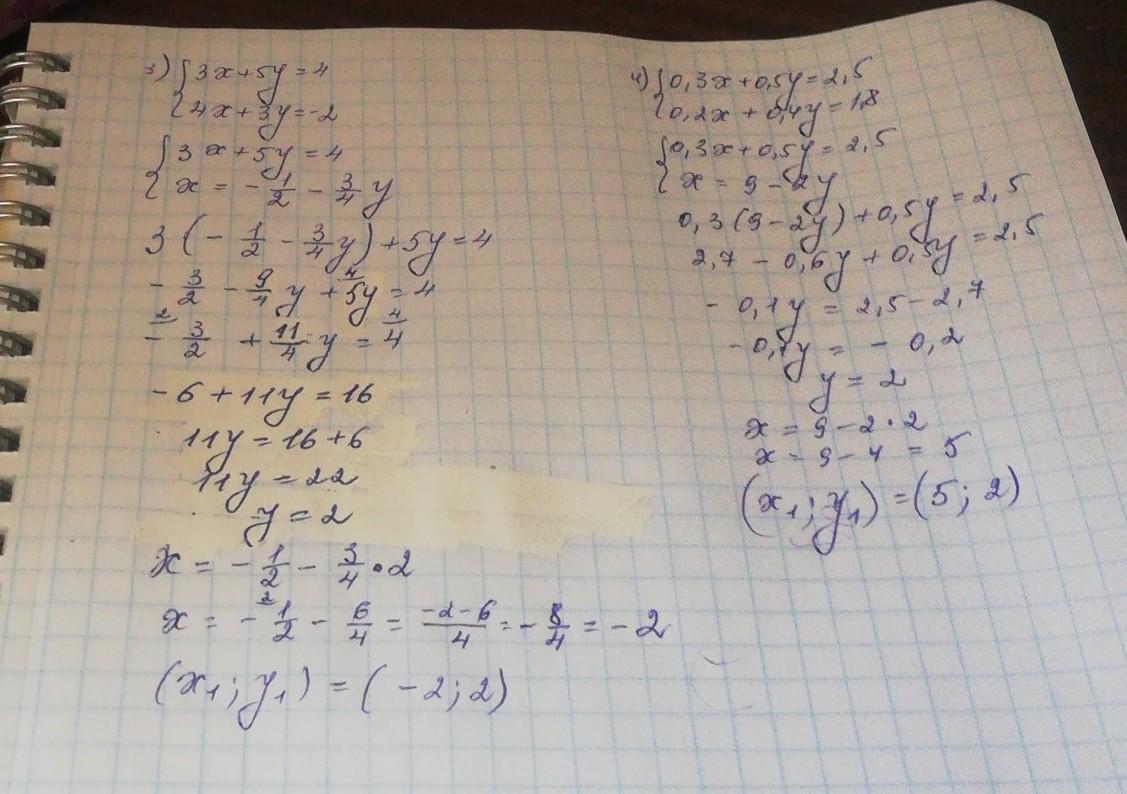 3) {3x+5y=4
{4x+3y=-2
{3x+5y=4
{x = -1/2 - 3/4 y
3(-1/2 - 3/4y)+5y=4
-3/2 - 9/4 y + 4/5y = 4
2/- 3/2 + 11/4 y = 4/4
-6+11y=16
11y=16+6
11y=22
y=2
x = -1/2 - 3/4•2
x = - 2 1/2 - 6/4 = -2-6/4 = -8/4 = -2
(x₁; y₁) = (-2; 2)
4) {0,3x+0,5y=2,5
{0,2x+0,4y=1,8
{0,3x+0,5y=2,5
{x = 9-2y
0,3(9-2y)+0,5y=2,5
2,7-0,6y+0,5y=2,5
-0,1y = 2,5-2,7
-0,1y = -0,2
y = 2
x = 9-2•2
x = 9-4 = 5
(x₁; y₁) = (5; 2)